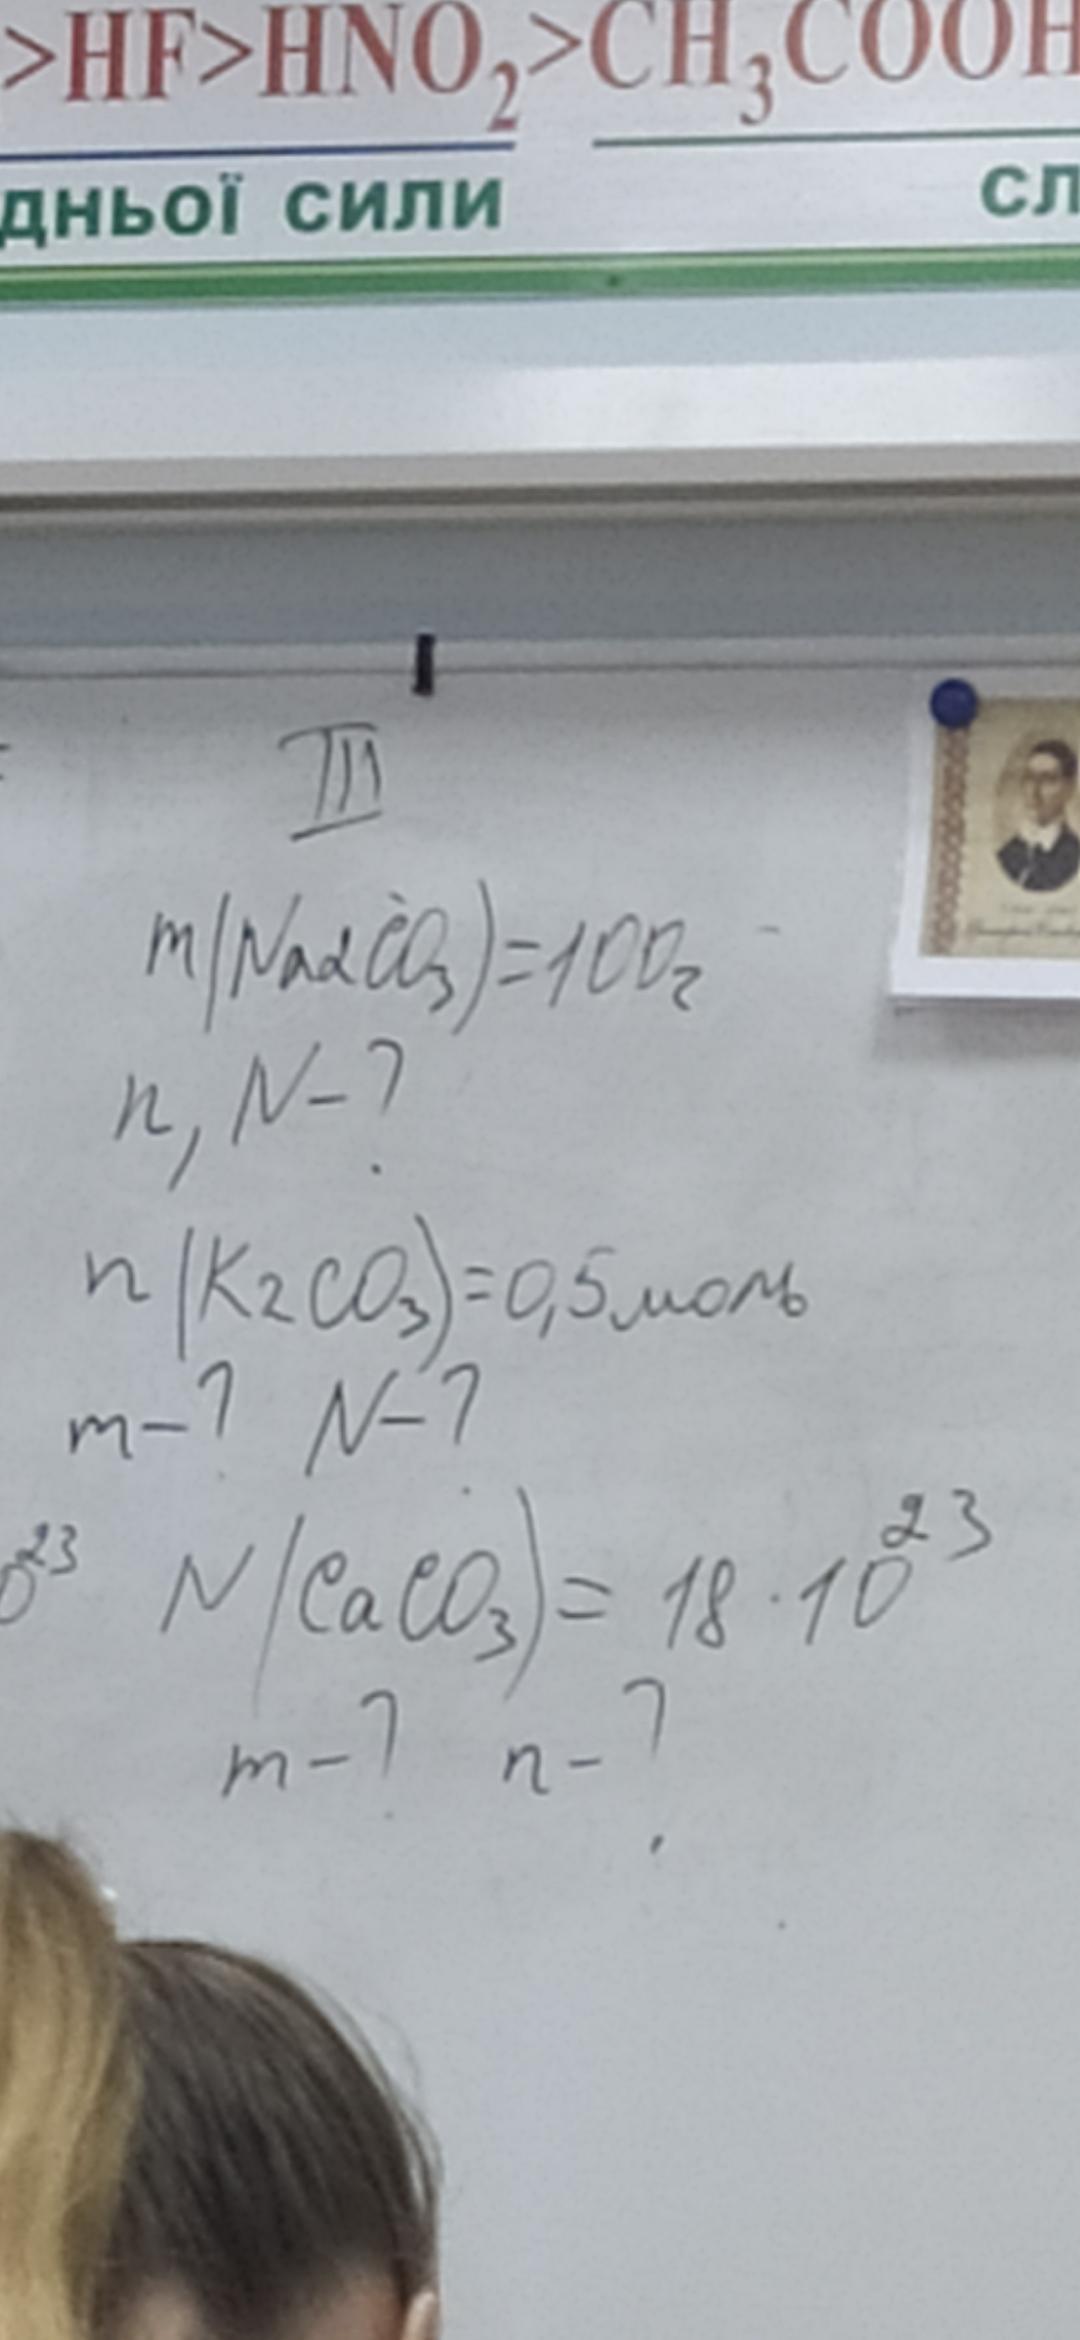 >HF>HNO₂>CH₃COOH
дньої сили сл
III
m(Na2CO₃)=100г
n, N-?
n(K2CO₃)=0,5моль
m-? N-?
0²³ N(CaCO₃)= 18·10²³
m-? n-?